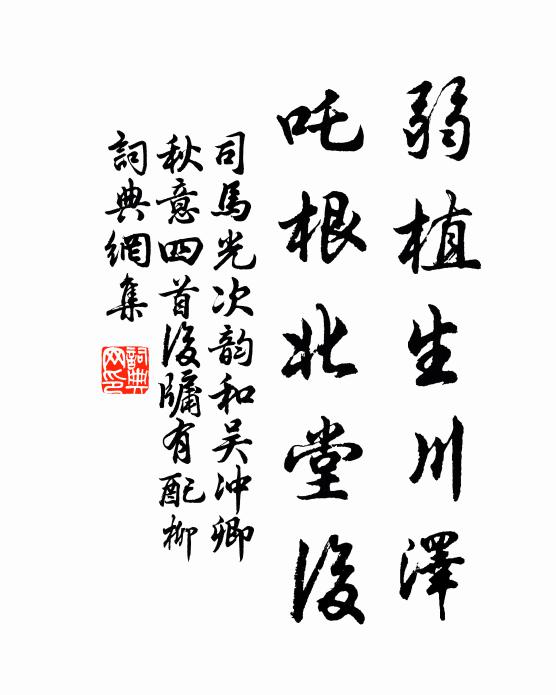 弱植生川澤
吒根北堂後
司馬光次韵和吴沖卿
秋意四首後牖有配柳
詞典網集
詞典网印